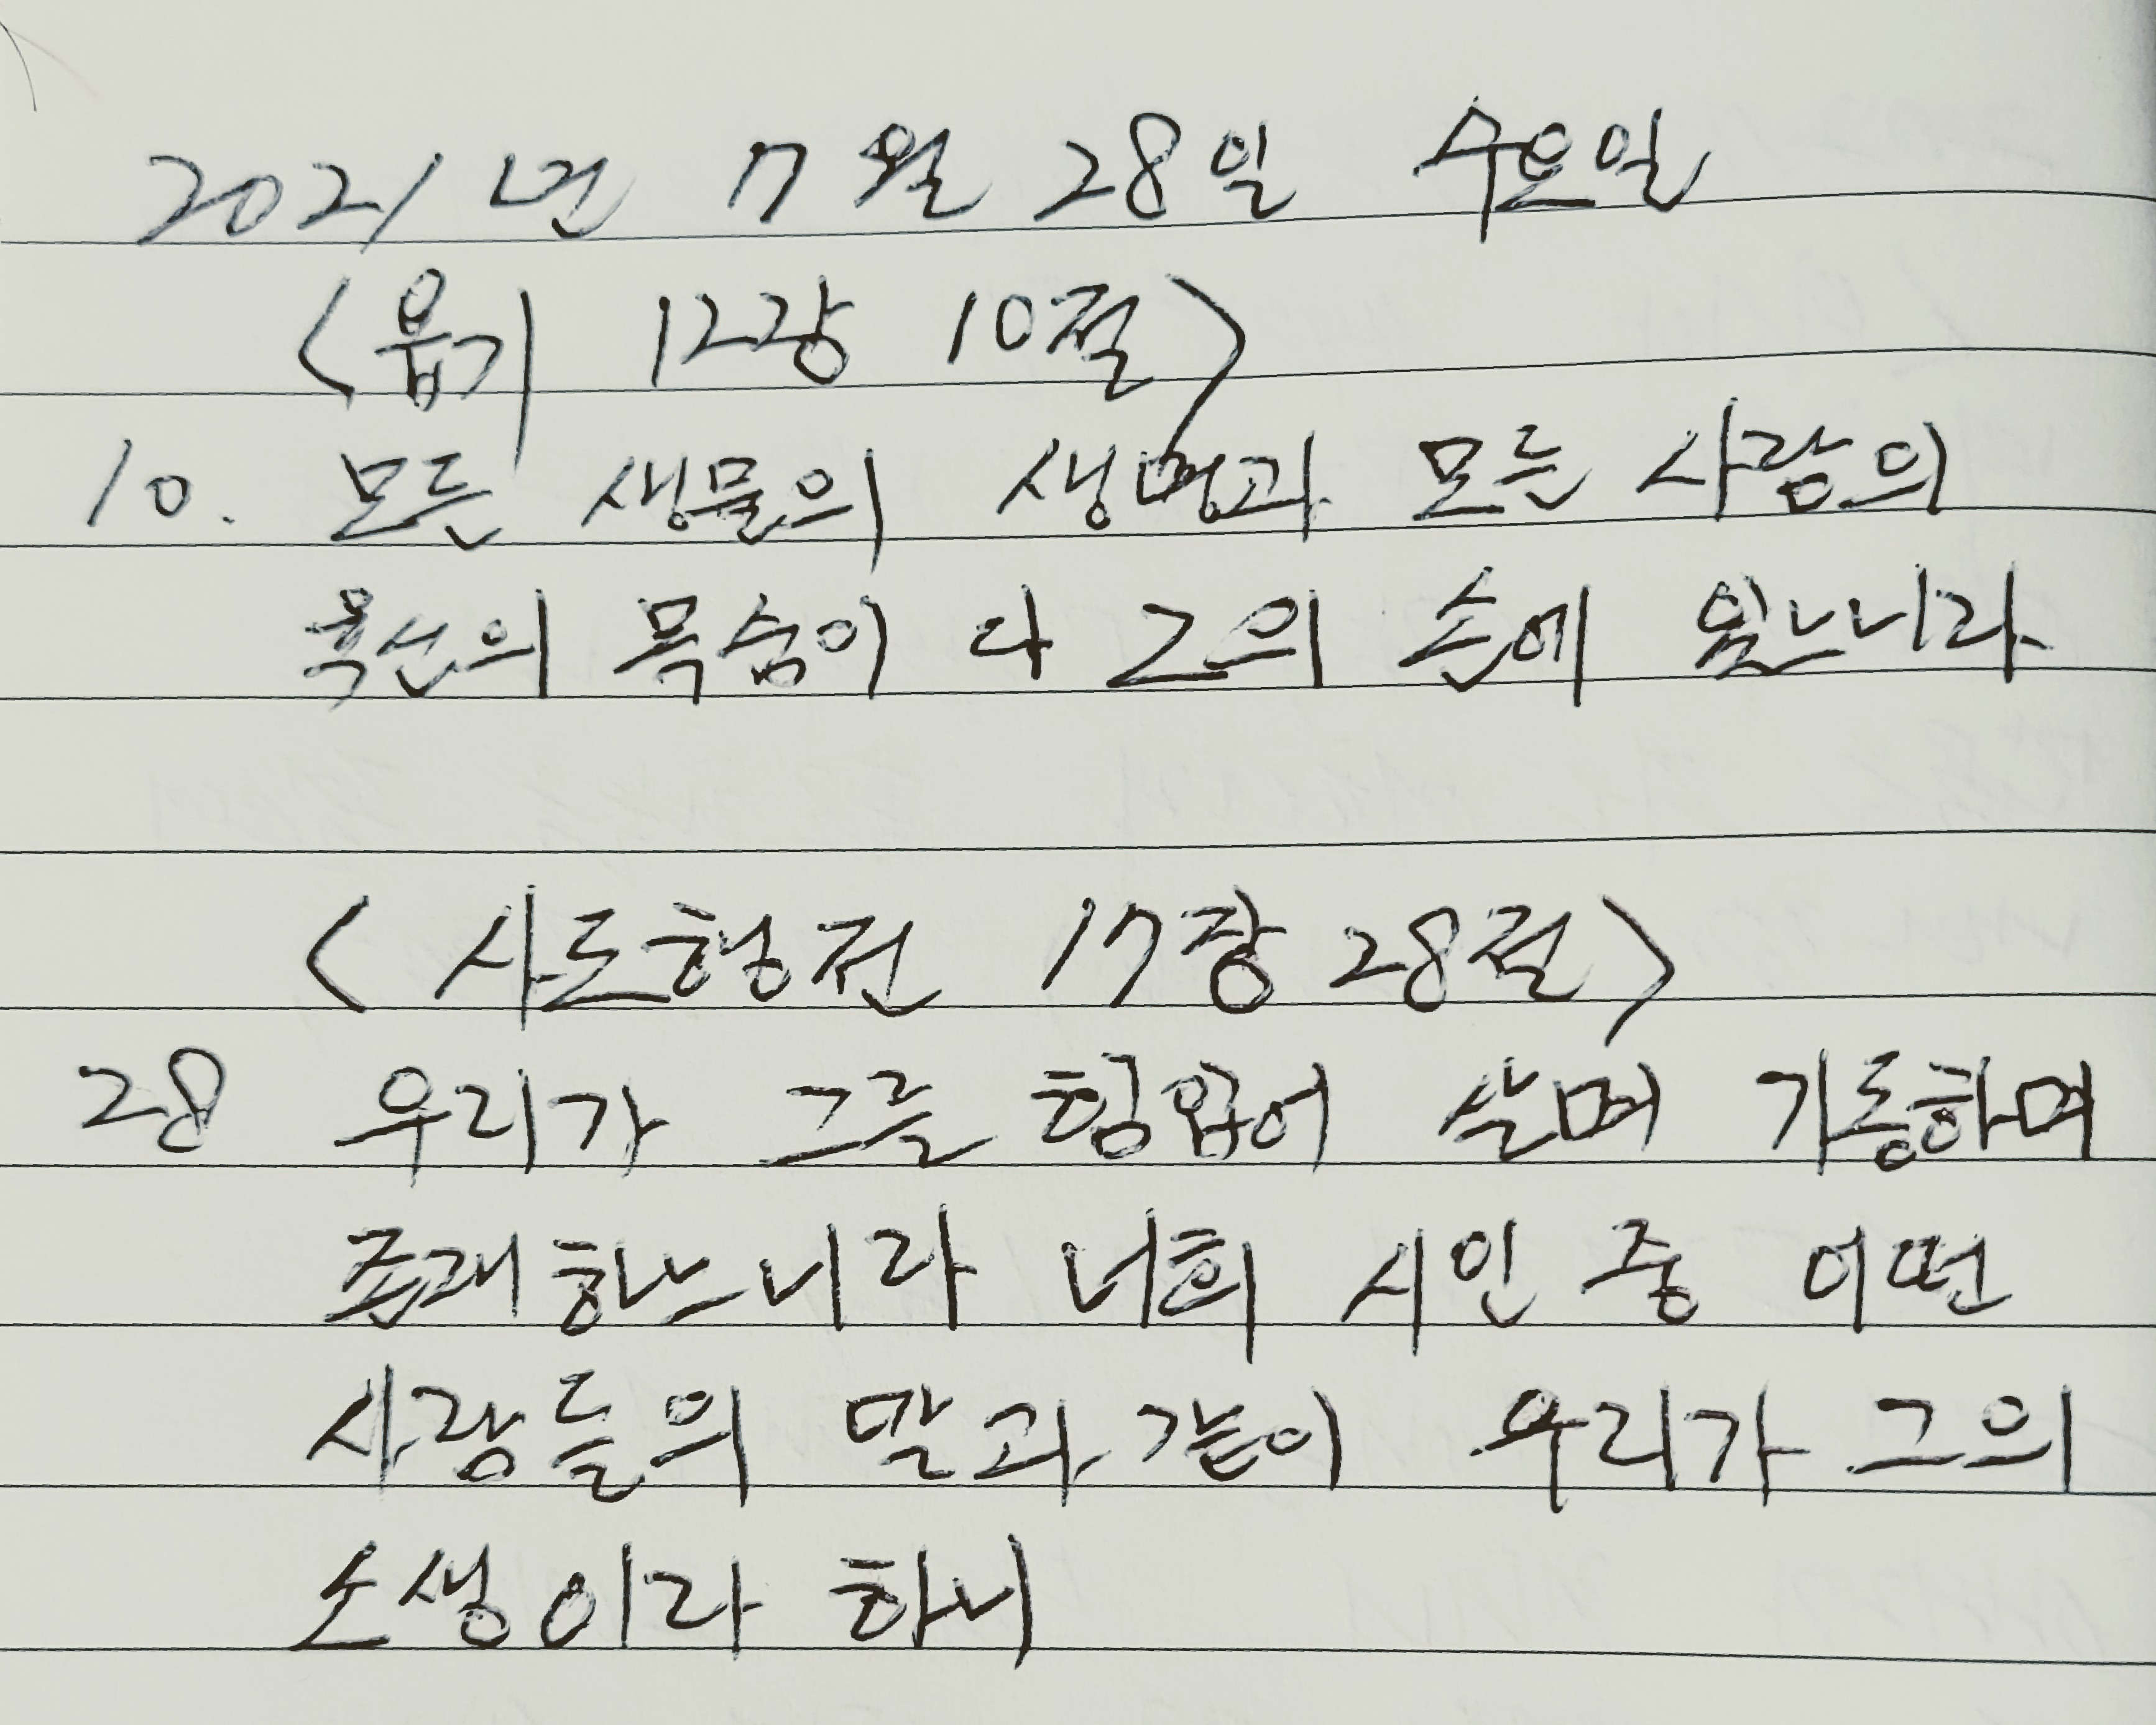 2021년 7월 28일 수요일
<욥기 12장 10절>
10. 모든 생물의 생명과 모든 사람의
육신의 목숨이 다 그의 손에 있느니라
<사도행전 17장 28절>
28 우리가 그를 힘입어 살며 기동하며
존재하느니라 너희 시인 중 어떤
사람들의 말과 같이 우리가 그의
소생이라 하니